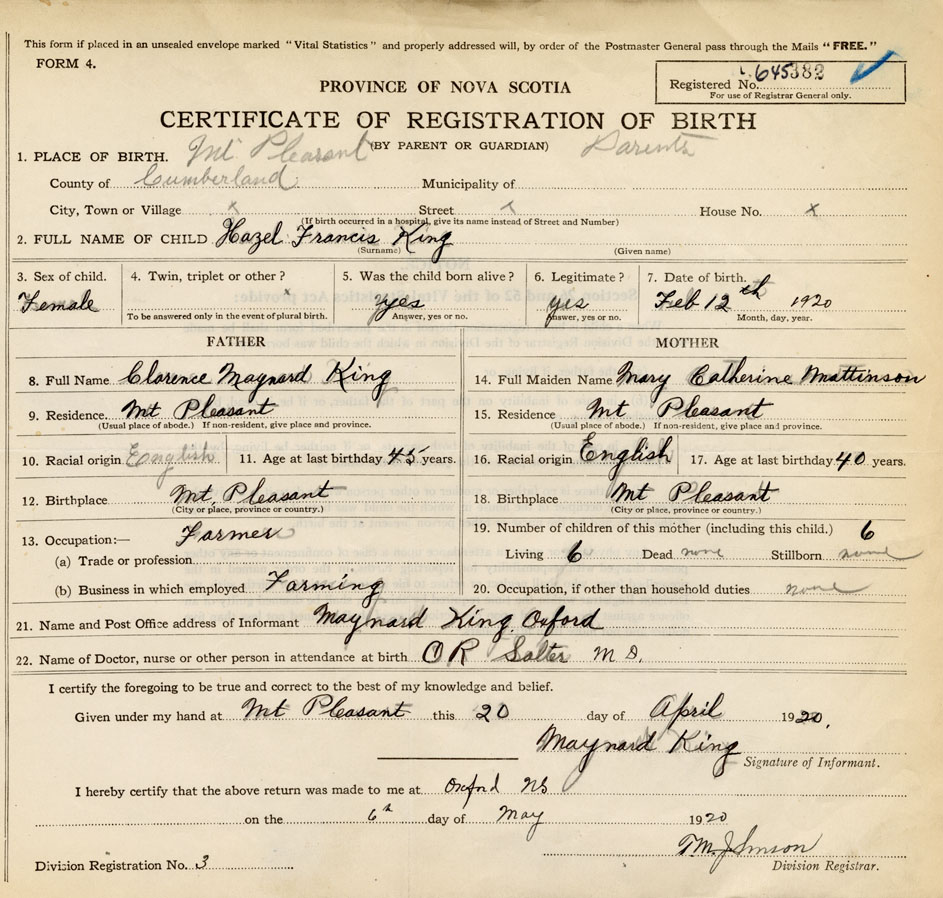 This form if placed in an unsealed envelope marked "Vital Statistics" and properly addressed will, by order of the Postmaster General pass through the Mails "FREE."
FORM 4.
PROVINCE OF NOVA SCOTIA
Registered No. 645382
For use of Registrar General only.
CERTIFICATE OF REGISTRATION OF BIRTH
(BY PARENT OR GUARDIAN) Parents
1. PLACE OF BIRTH. Mt Pleasant
County of Cumberland Municipality of
City, Town or Village x Street x House No. x
(If birth occurred in a hospital, give its name instead of Street and Number)
2. FULL NAME OF CHILD Hazel Francis King
(Surname) (Given name)
3. Sex of child. 4. Twin, triplet or other? 5. Was the child born alive? 6. Legitimate? 7. Date of birth.
Female x yes yes Feb 12th 1920
To be answered only in the event of plural birth. Answer, yes or no. Answer, yes or no. Month, day, year.
FATHER
8. Full Name Clarence Maynard King
9. Residence. Mt Pleasant
(Usual place of abode.) If non-resident, give place and province.
10. Racial origin English 11. Age at last birthday 45 years.
12. Birthplace Mt. Pleasant
(City or place, province or country.)
13. Occupation:— Farmer
(a) Trade or profession
(b) Business in which employed Farming
MOTHER
14. Full Maiden Name Mary Catherine Mattinson
15. Residence Mt Pleasant
(Usual place of abode.) If non-resident, give place and province.
16. Racial origin English 17. Age at last birthday 40 years.
18. Birthplace Mt Pleasant
(City or place, province or country.)
19. Number of children of this mother (including this child.) 6
Living 6 Dead none Stillborn none
20. Occupation, if other than household duties none
21. Name and Post Office address of Informant Maynard King. Oxford
22. Name of Doctor, nurse or other person in attendance at birth O R Salter M D.
I certify the foregoing to be true and correct to the best of my knowledge and belief.
Given under my hand at Mt Pleasant this 20 day of April 1920.
Maynard King
Signature of Informant.
I hereby certify that the above return was made to me at Oxford NS
on the 6th day of May 1920
T.M. Johnson
Division Registration No. 3 Division Registrar.